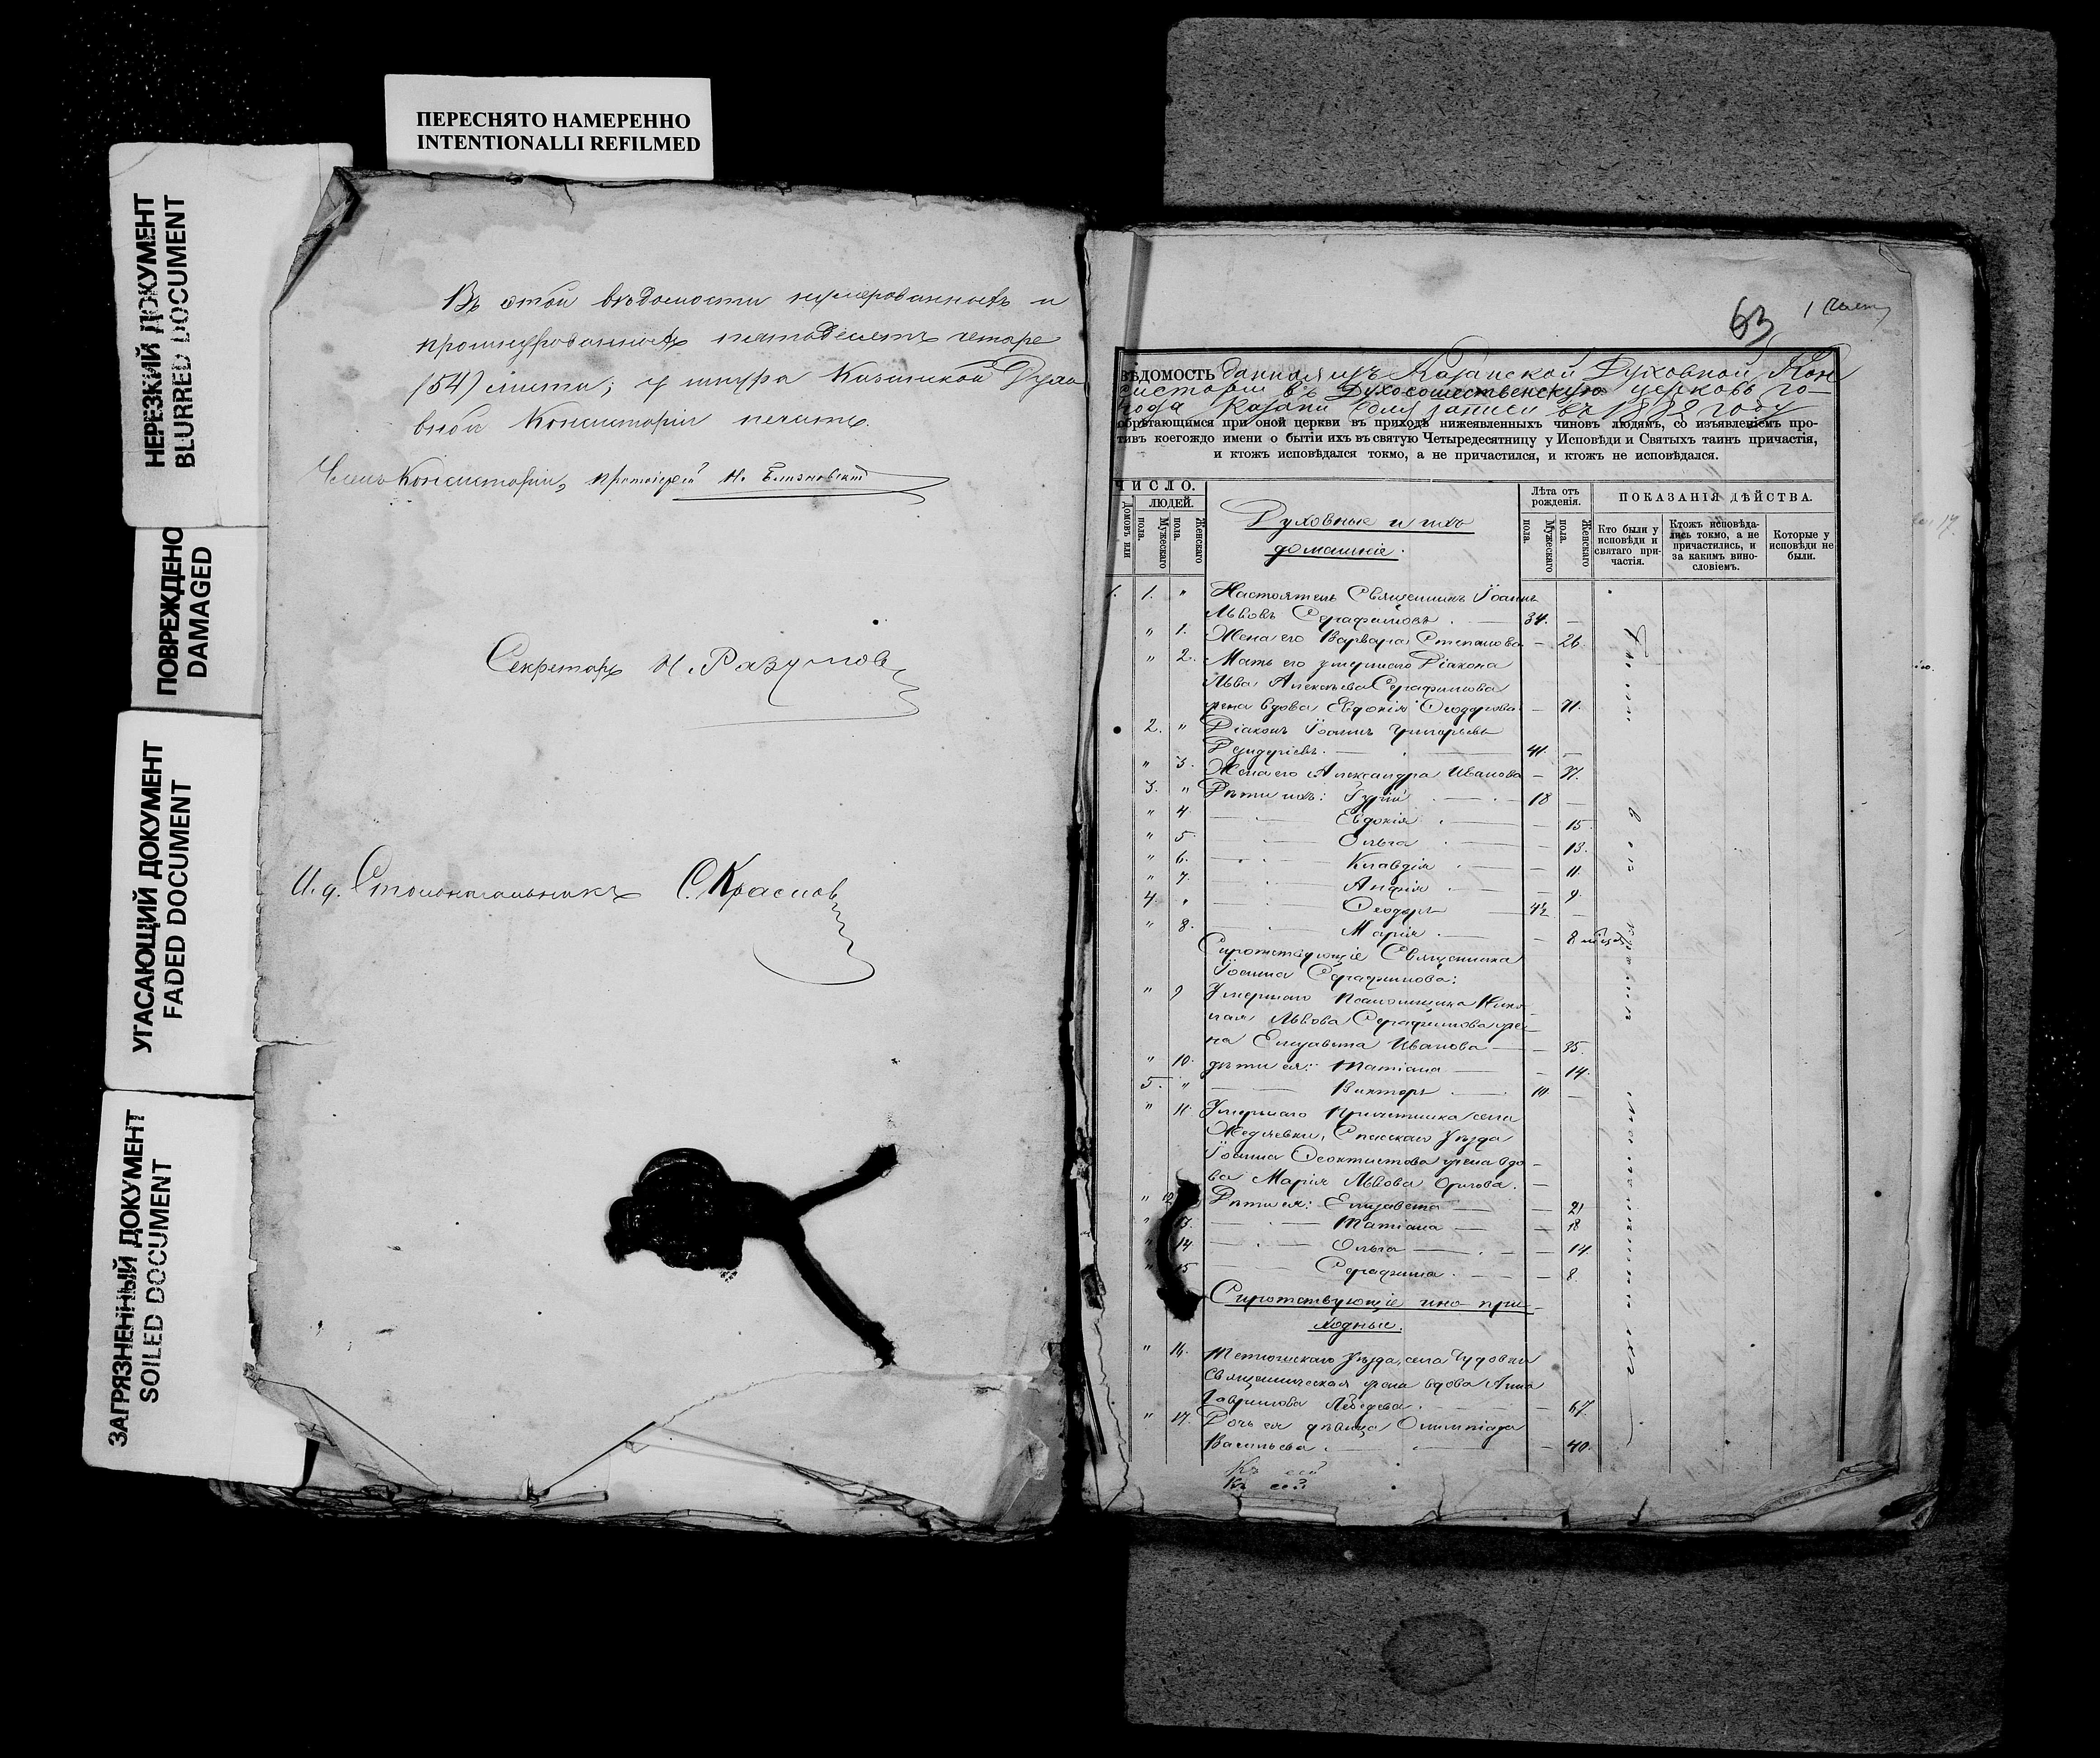 ПЕРЕСНЯТО НАМЕРЕННО
INTENTIONALLI REFILMED
НЕРЕЗКИЙ ДОКУМЕНТ
BLURRED DOCUMENT
ПОВРЕЖДЕНО
DAMAGED
УГАСАЮЩИЙ ДОКУМЕНТ
FADED DOCUMENT
ЗАГРЯЗНЕННЫЙ ДОКУМЕНТ
SOILED DOCUMENT
Въ этой вѣдомости нумерованныхъ и
прошнурованныхъ пятьдесятъ четыре
(54) листа; у шнура Казанской Духо
вной Консисторіи печать.
Членъ Консисторіи, протоіерей
Секретарь Н. Разумов
И. д. Столоначальника С. Краснов
63
ВѢДОМОСТЬ данная изъ Казанской Духовной Кон
систоріи въ Духосошественскую церковь го-
рода Казани для записи въ 1882 году
обрѣтающимся при оной церкви въ приходѣ нижеявленныхъ чиновъ людямъ, со изъявленіемъ про-
тивъ коегождо имени о бытіи ихъ въ святую Четыредесятницу у Исповѣди и Святыхъ таинъ причастія,
и ктожъ исповѣдался токмо, а не причастился, и ктожъ не исповѣдался.
ЧИСЛО.
Домовъ или
ЛЮДЕЙ.
Мужескаго пола.
Женскаго пола.
Духовные и ихъ
домашніе.
Лѣта отъ рожденія.
Мужескаго пола.
Женскаго пола.
ПОКАЗАНІЯ ДѢЙСТВА.
Кто были у исповѣди и святаго причастія.
Ктожъ исповѣдались токмо, а не причастились, и за какимъ винословіемъ.
Которые у исповѣди не были.
1. 1. " Настоятель Священникъ Іоаннъ
Львовъ Серафимовъ 34. —
" 1. Жена его Варвара Степанова — 26.
" 2. Мать его умершаго Діакона
Льва Алексѣева Серафимова
жена вдова Евдокія Ѳеодорова — 71.
2. " Діаконъ Іоаннъ Григорьевъ
41. —
" 3. Жена его Александра Иванова — 37.
3. " Дѣти ихъ: Гурій 18 —
" 4. Евдокія 15
" 5. Ольга 13.
" 6. Клавдія 11.
" 7. Анфія 9.
4. " Ѳеодоръ —
" 8. Марія — 8
Сиротствующіе Священника
Іоанна Серафимова:
" 9 Умершаго Псаломщика Нико
лая Львова Серафимова же-
на Елизавета Иванова — 35.
" 10. дѣти ея: Татіана — 14.
5. " Викторъ 10. —
" 11. Умершаго Причетника села
Спасскаго Уѣзда
Іоанна Ѳеоктистова жена вдо
ва Марія Львова Орлова. —
" 12 Дѣти ея: Елизавета — 21
" 13. Татіана — 18
" 14 Ольга — 14.
" 15 Серафима — 8.
Сиротствующіе ино при-
ходные.
" 16. Тетюшскаго Уѣзда, села Чудовки
Священническая жена вдова Анна
Гаврилова Лебедева — 67.
" 17. Дочь ея дѣвица Олимпіада
Васильева — 40.
Къ сей
Къ сей